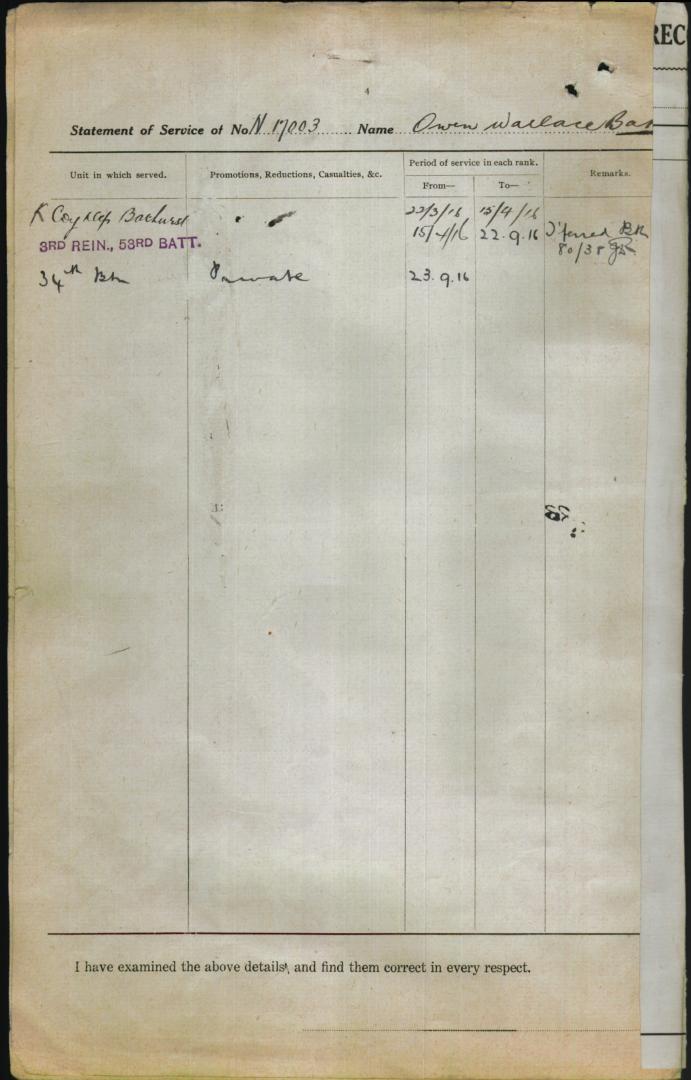 REC
4
Statement of Service of No N 17003 Name Owen Wallace Bat
Unit in which served. Promotions, Reductions, Casualties, &c. Period of service in each rank. Remarks.
From— To—
K Coy Bathurst 22/3/16 15/4/16
3RD REIN., 53RD BATT. 15/4/16 22.9.16 T'ferred
80/38
34th Bn Private 23.9.16
I have examined the above details, and find them correct in every respect.